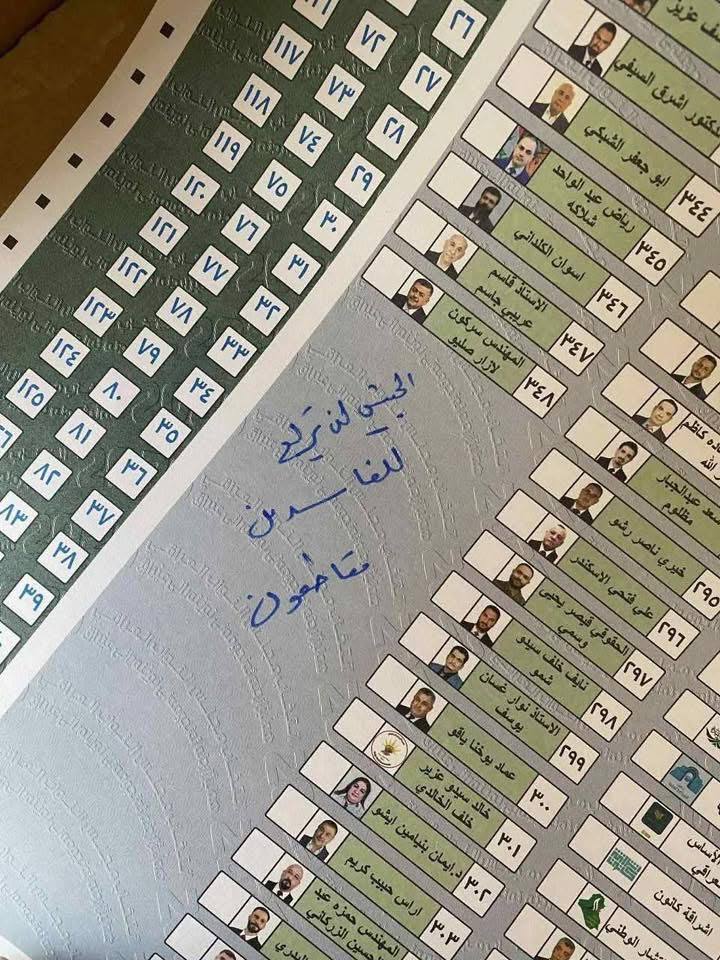 ٢٦ ٧٢ ١١٧
٢٧ ٧٣ ١١٨
٢٨ ٧٤ ١١٩
٢٩ ٧٥ ١٢٠
٣٠ ٧٦ ١٢١
٣١ ٧٧ ١٢٢
٣٢ ٧٨ ١٢٣
٣٣ ٧٩ ١٢٤
٣٤ ٨٠ ١٢٥
٣٥ ٨١
٣٦ ٨٢
٣٧ ٨٣
٣٨
٣٩
اشرق السيفي
٣٤٤ ابو جعفر الشبكي
٣٤٥ رياض عبد الواحد
شلاكه
٣٤٦ اسوان الكلداني
٣٤٧ الاستاذ قاسم
عريبي جاسم
٣٤٨ المهندس سركون
لازار صليو
الجيش لن يركع
للفاسدين
مقاطعون
كاظم
الله
عبدالجبار
مظلوم
٢٩٥ خيري ناصر رشو
٢٩٦ علي فتحي الاسكندر
٢٩٧ الحقوقي قيصر يحيى
وسمي
٢٩٨ نايف خلف سيدو
شمو
٢٩٩ الاستاذ نوار غسان
يوسف
٣٠٠ عماد يوخنا ياقو
٣٠١ خالد سيدو عزيز
خلف الخالدي
٣٠٢ د.ايمان بنيامين ايشو
٣٠٣ اراس حبيب كريم
المهندس حمزه عبد
حسين الزركاني
الأساس
اشراقة كانون
الوطني